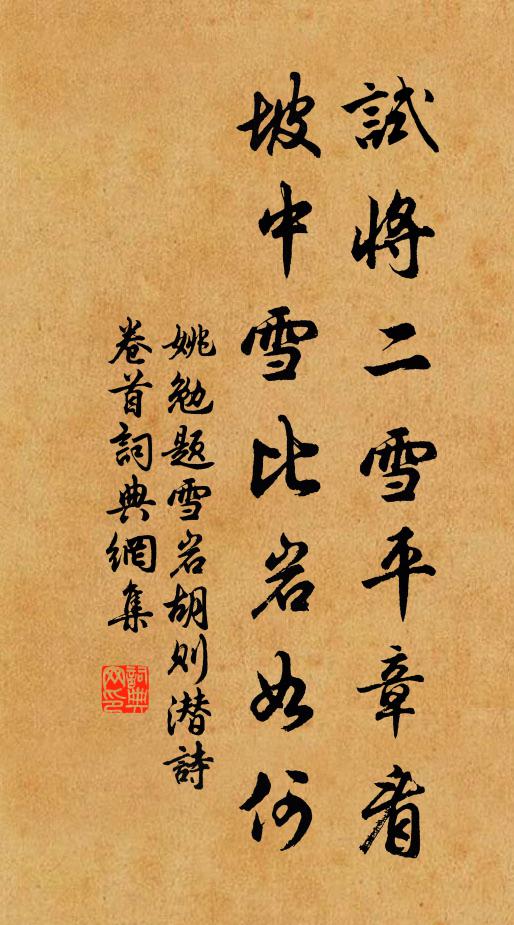 試將二雪平章看
坡中雪比岩如何
姚勉題雪岩胡则潜詩
卷首詞典網集
詞典
网印